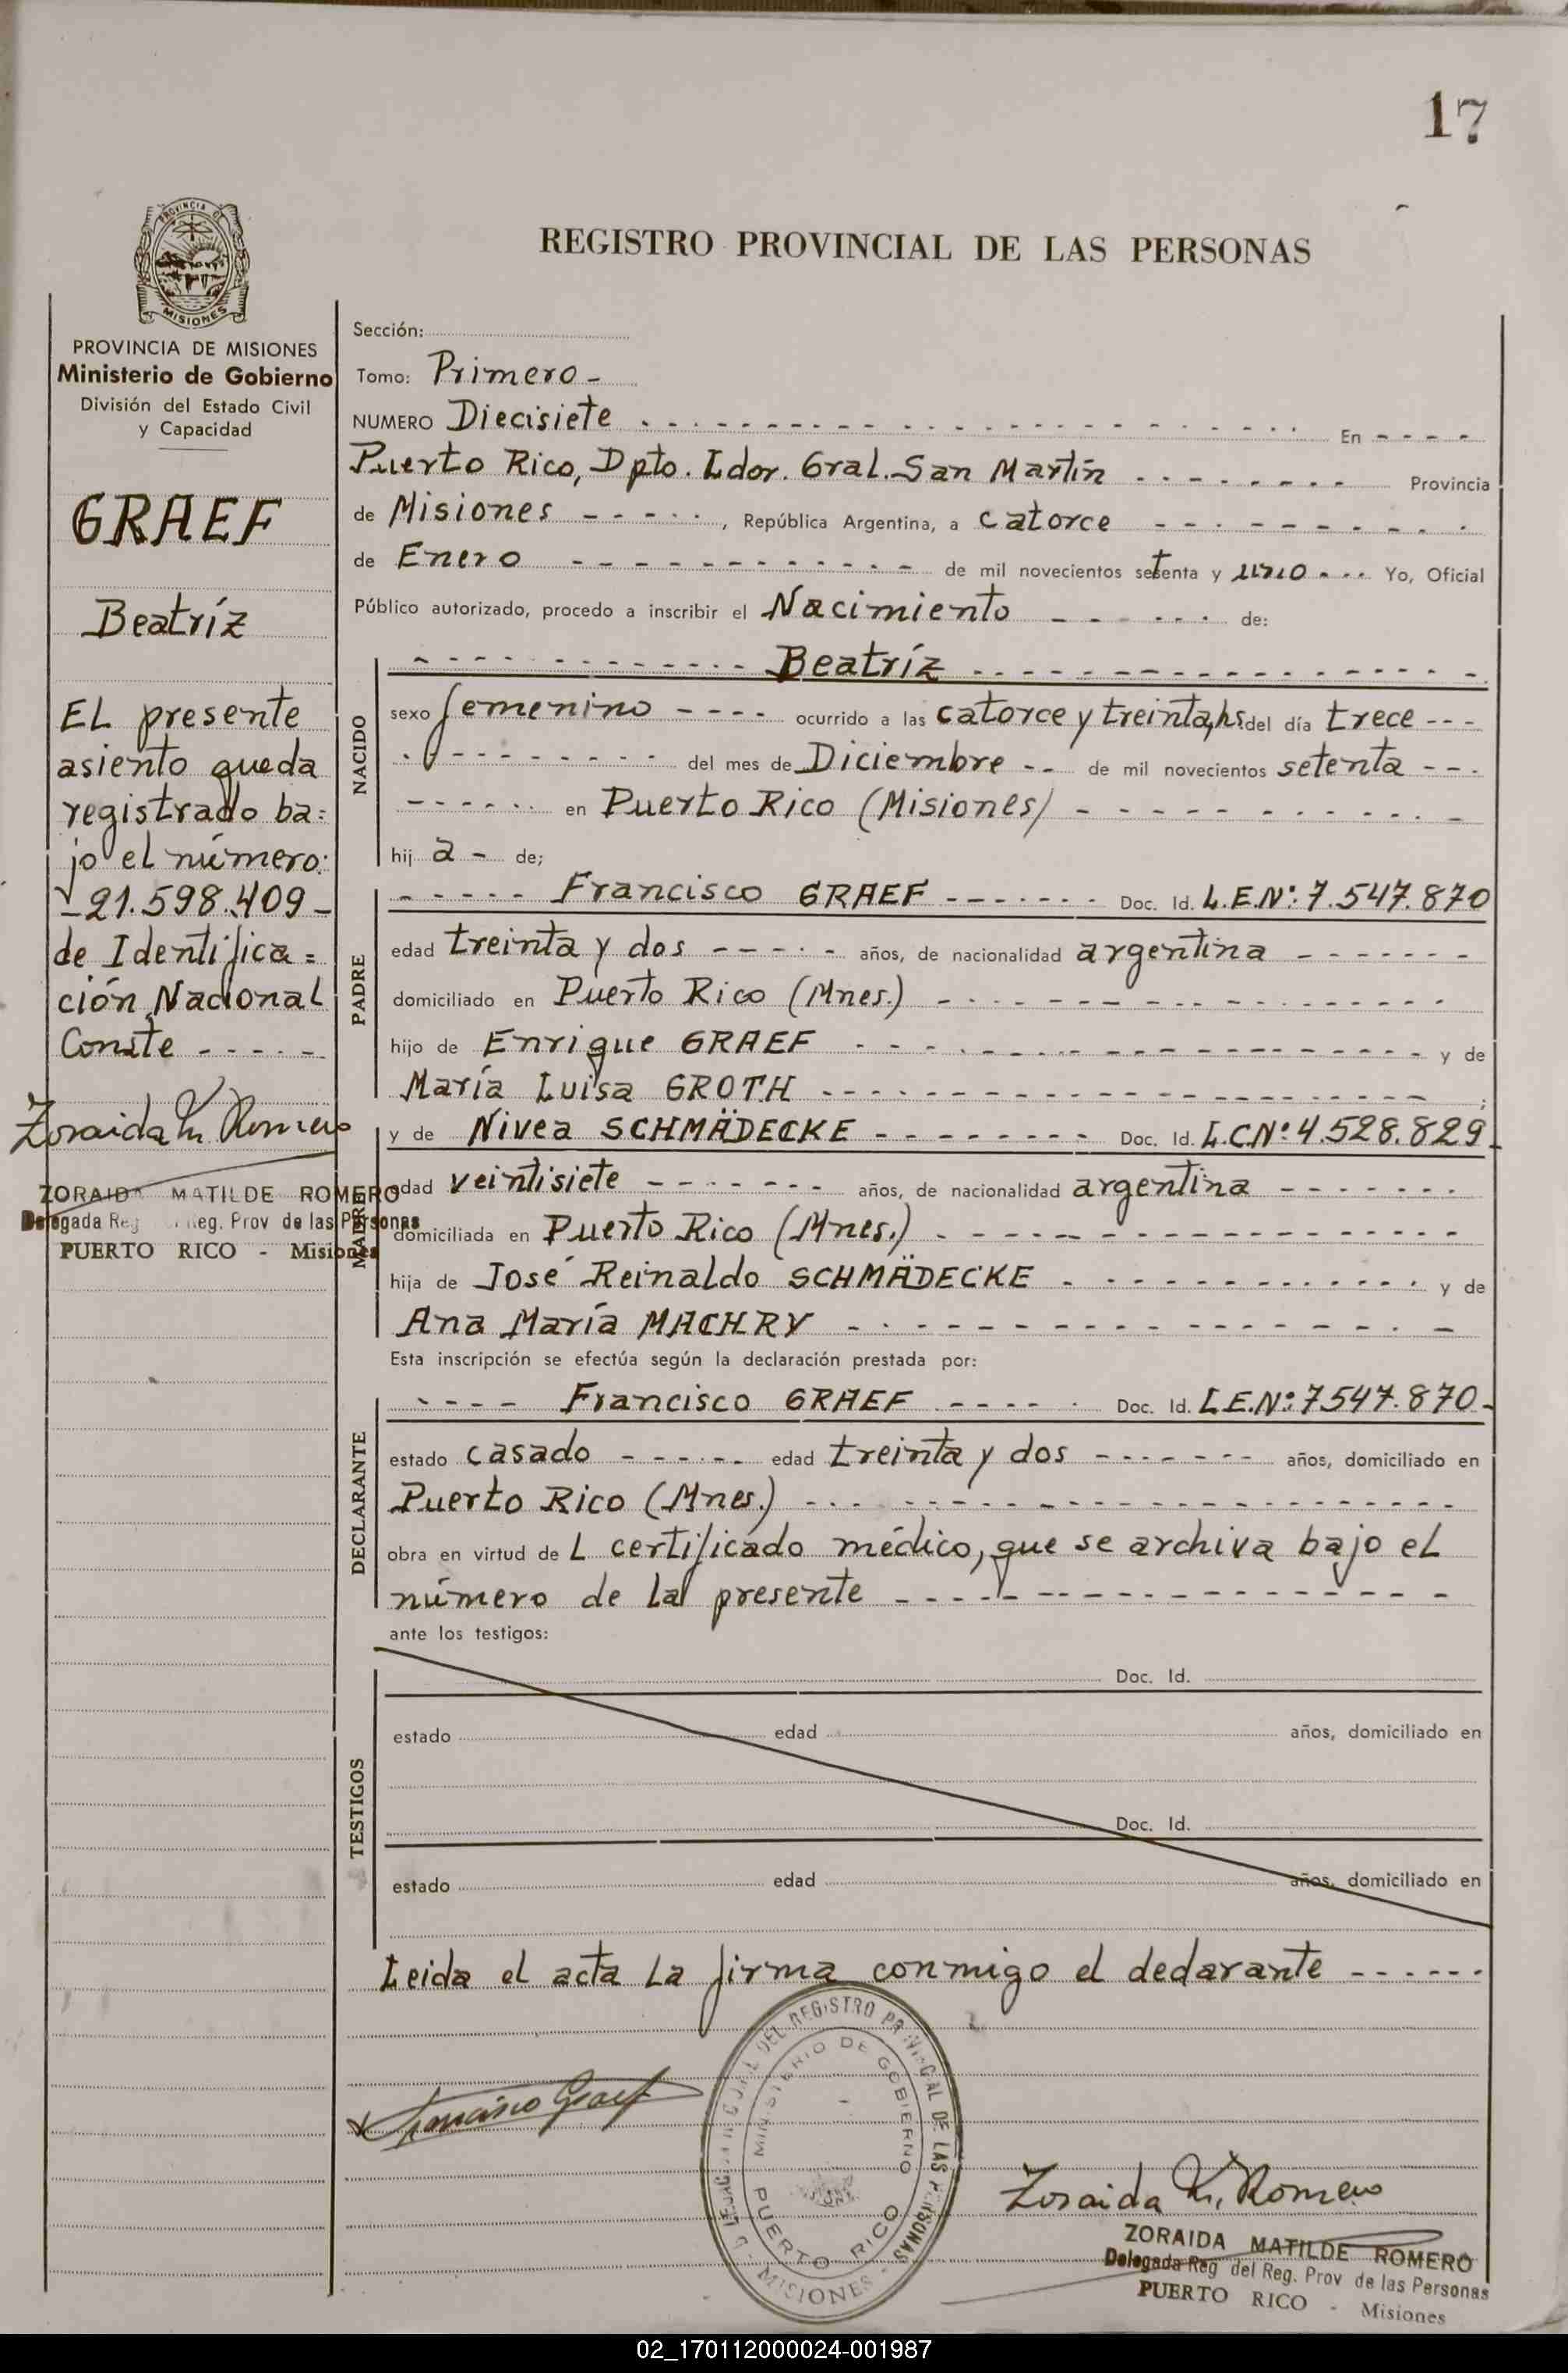 17
PROVINCIA DE
MISIONES
REGISTRO PROVINCIAL DE LAS PERSONAS
PROVINCIA DE MISIONES
Ministerio de Gobierno
División del Estado Civil
y Capacidad
GRAEF
Beatríz
EL presente
asiento queda
registrado ba=
jo el número:
-21.598.409-
de Identifica=
ción Nacional
Conste - - - - -
Zoraida M. Romero
ZORAIDA MATILDE ROMERO
Delegada Reg Reg. Prov de las Personas
PUERTO RICO - Misiones
Sección:
Tomo: Primero -
NUMERO Diecisiete - - - - En - - - -
Puerto Rico, Dpto. Ldor. Gral. San Martín - - - - Provincia
de Misiones - - - - -, República Argentina, a catorce - - - -
de Enero - - - - de mil novecientos setenta y uno - - - Yo, Oficial
Público autorizado, procedo a inscribir el Nacimiento - - - - de:
NACIDO
- - - - Beatríz - - - -
sexo femenino - - - - ocurrido a las catorce y treinta hs. del día trece - - -
- - - - del mes de Diciembre - - de mil novecientos setenta - - -
- - - - en Puerto Rico (Misiones) - - - -
hij a - de;
PADRE
- - - - Francisco GRAEF - - - - Doc. Id. L.E.Nº: 7.547.870
edad treinta y dos - - - - años, de nacionalidad argentina - - - -
domiciliado en Puerto Rico (Mnes.) - - - -
hijo de Enrique GRAEF - - - - y de
María Luisa GROTH - - - - ;
MADRE
y de Nivea SCHMÄDECKE - - - - Doc. Id. L.C.Nº: 4.528.829
edad veintisiete - - - - años, de nacionalidad argentina - - - -
domiciliada en Puerto Rico (Mnes.) - - - -
hija de José Reinaldo SCHMÄDECKE - - - - y de
Ana María MACHRY - - - -
Esta inscripción se efectúa según la declaración prestada por:
DECLARANTE
- - - - Francisco GRAEF - - - - Doc. Id. L.E.Nº: 7.547.870-
estado casado - - - - edad treinta y dos - - - - años, domiciliado en
Puerto Rico (Mnes.) - - - -
obra en virtud de L certificado médico, que se archiva bajo el
número de la presente - - - -
ante los testigos:
TESTIGOS
Doc. Id.
estado edad años, domiciliado en
Doc. Id.
estado edad años, domiciliado en
Leida el acta la firma conmigo el declarante - - - -
Francisco Graef
DEL REGISTRO PROVINCIAL DE LAS PERSONAS
MINISTERIO DE GOBIERNO
PUERTO RICO
- MISIONES -
Zoraida M. Romero
ZORAIDA MATILDE ROMERO
Delegada Reg del Reg. Prov de las Personas
PUERTO RICO - Misiones
02_170112000024-001987